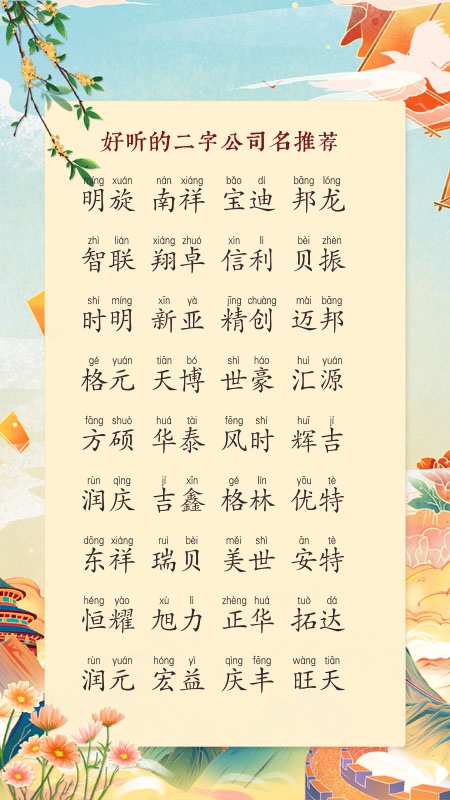 好听的二字公司名推荐
míng xuán nán xiáng bǎo dí bāng lóng
明旋 南祥 宝迪 邦龙
zhì lián xiáng zhuó xìn lì bèi zhèn
智联 翔卓 信利 贝振
shí míng xīn yà jīng chuàng mài bāng
时明 新亚 精创 迈邦
gé yuán tiān bó shì háo huì yuán
格元 天博 世豪 汇源
fāng shuò huá tài fēng shí huī jí
方硕 华泰 风时 辉吉
rùn qìng jí xīn gé lín yōu tè
润庆 吉鑫 格林 优特
dōng xiáng ruì bèi měi shì ān tè
东祥 瑞贝 美世 安特
héng yào xù lì zhèng huá tuò dá
恒耀 旭力 正华 拓达
rùn yuán hóng yì qìng fēng wàng tiān
润元 宏益 庆丰 旺天